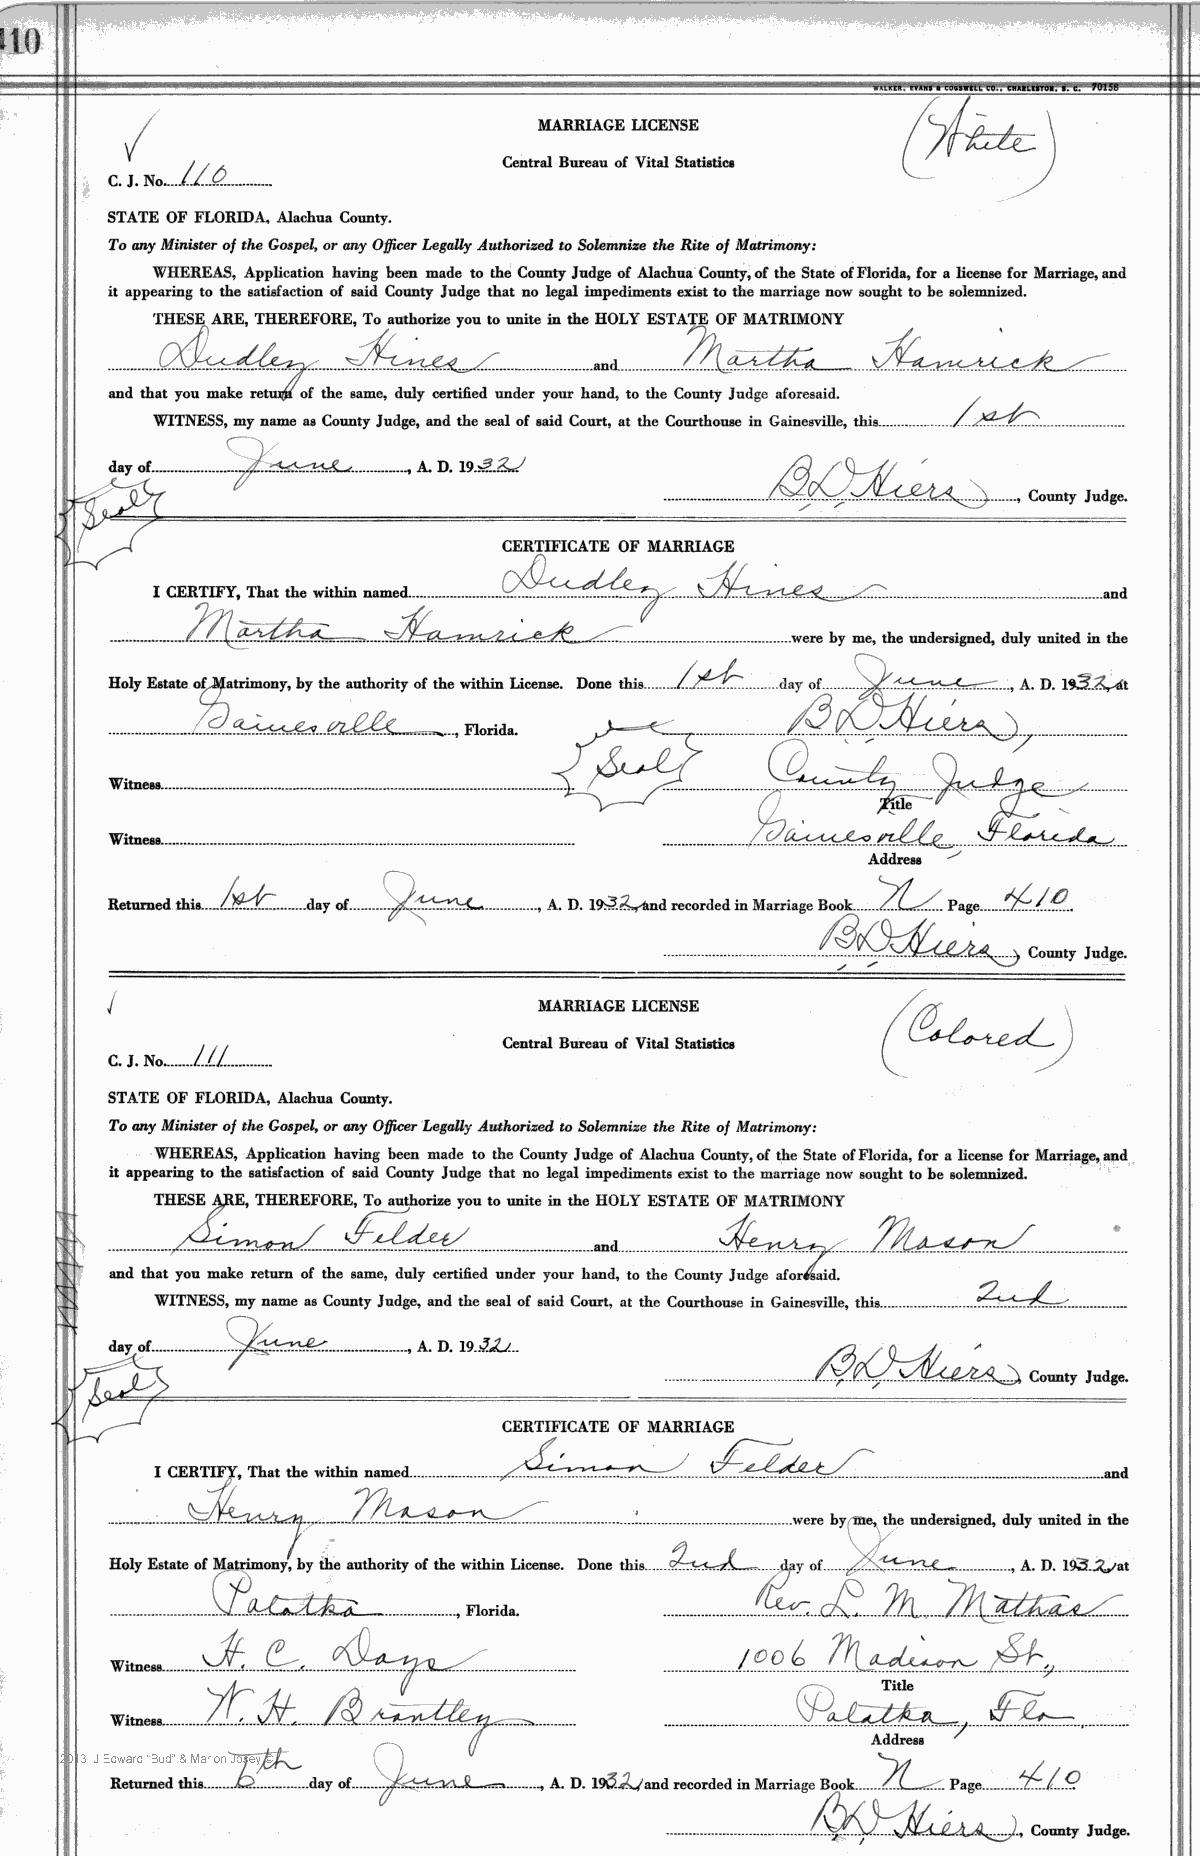 410
WALKER, EVANS & COGSWELL CO., CHARLESTON, S. C. 70158
MARRIAGE LICENSE
(White)
Central Bureau of Vital Statistics
C. J. No. 110
STATE OF FLORIDA, Alachua County.
To any Minister of the Gospel, or any Officer Legally Authorized to Solemnize the Rite of Matrimony:
WHEREAS, Application having been made to the County Judge of Alachua County, of the State of Florida, for a license for Marriage, and
it appearing to the satisfaction of said County Judge that no legal impediments exist to the marriage now sought to be solemnized.
THESE ARE, THEREFORE, To authorize you to unite in the HOLY ESTATE OF MATRIMONY
Dudley Hines and Martha Hamrick
and that you make return of the same, duly certified under your hand, to the County Judge aforesaid.
WITNESS, my name as County Judge, and the seal of said Court, at the Courthouse in Gainesville, this 1st
day of June, A. D. 1932
B D Hiers, County Judge.
Seal
CERTIFICATE OF MARRIAGE
I CERTIFY, That the within named Dudley Hines and
Martha Hamrick were by me, the undersigned, duly united in the
Holy Estate of Matrimony, by the authority of the within License. Done this 1st day of June, A. D. 1932, at
Gainesville, Florida. B D Hiers,
Seal
Witness County Judge
Title
Witness Gainesville, Florida
Address
Returned this 1st day of June, A. D. 1932, and recorded in Marriage Book N Page 410
B D Hiers, County Judge.
MARRIAGE LICENSE
(Colored)
Central Bureau of Vital Statistics
C. J. No. 111
STATE OF FLORIDA, Alachua County.
To any Minister of the Gospel, or any Officer Legally Authorized to Solemnize the Rite of Matrimony:
WHEREAS, Application having been made to the County Judge of Alachua County, of the State of Florida, for a license for Marriage, and
it appearing to the satisfaction of said County Judge that no legal impediments exist to the marriage now sought to be solemnized.
THESE ARE, THEREFORE, To authorize you to unite in the HOLY ESTATE OF MATRIMONY
Simon Felder and Henry Mason
and that you make return of the same, duly certified under your hand, to the County Judge aforesaid.
WITNESS, my name as County Judge, and the seal of said Court, at the Courthouse in Gainesville, this 2nd
day of June, A. D. 1932
B, D, Hiers, County Judge.
Seal
CERTIFICATE OF MARRIAGE
I CERTIFY, That the within named Simon Felder and
Henry Mason were by me, the undersigned, duly united in the
Holy Estate of Matrimony, by the authority of the within License. Done this 2nd day of June, A. D. 1932, at
Palatka, Florida. Rev. L. M. Mathas
Witness H. C. Days 1006 Madison St.,
Title
Witness W. H. Brantley Palatka, Fla
Address
2013 J Edward "Bud" & Marion Josey ©
Returned this 6th day of June, A. D. 1932, and recorded in Marriage Book N Page 410
B, D, Hiers, County Judge.